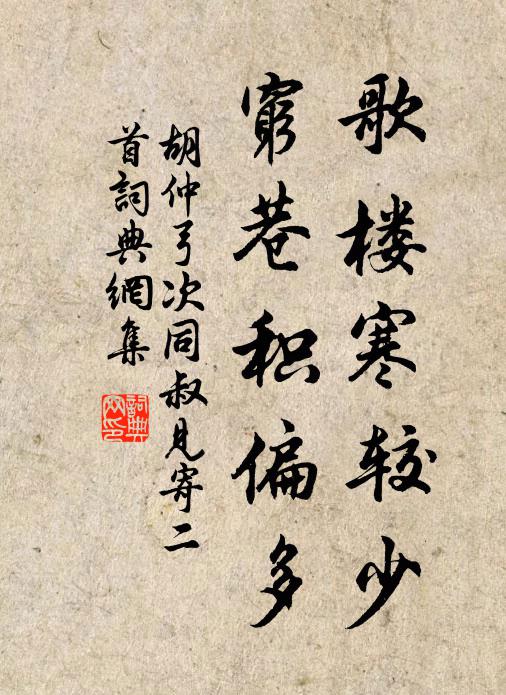 歌楼寒较少
窮巷积偏多
胡仲弓次同叔见寄二
首詞典網集
詞典
网印